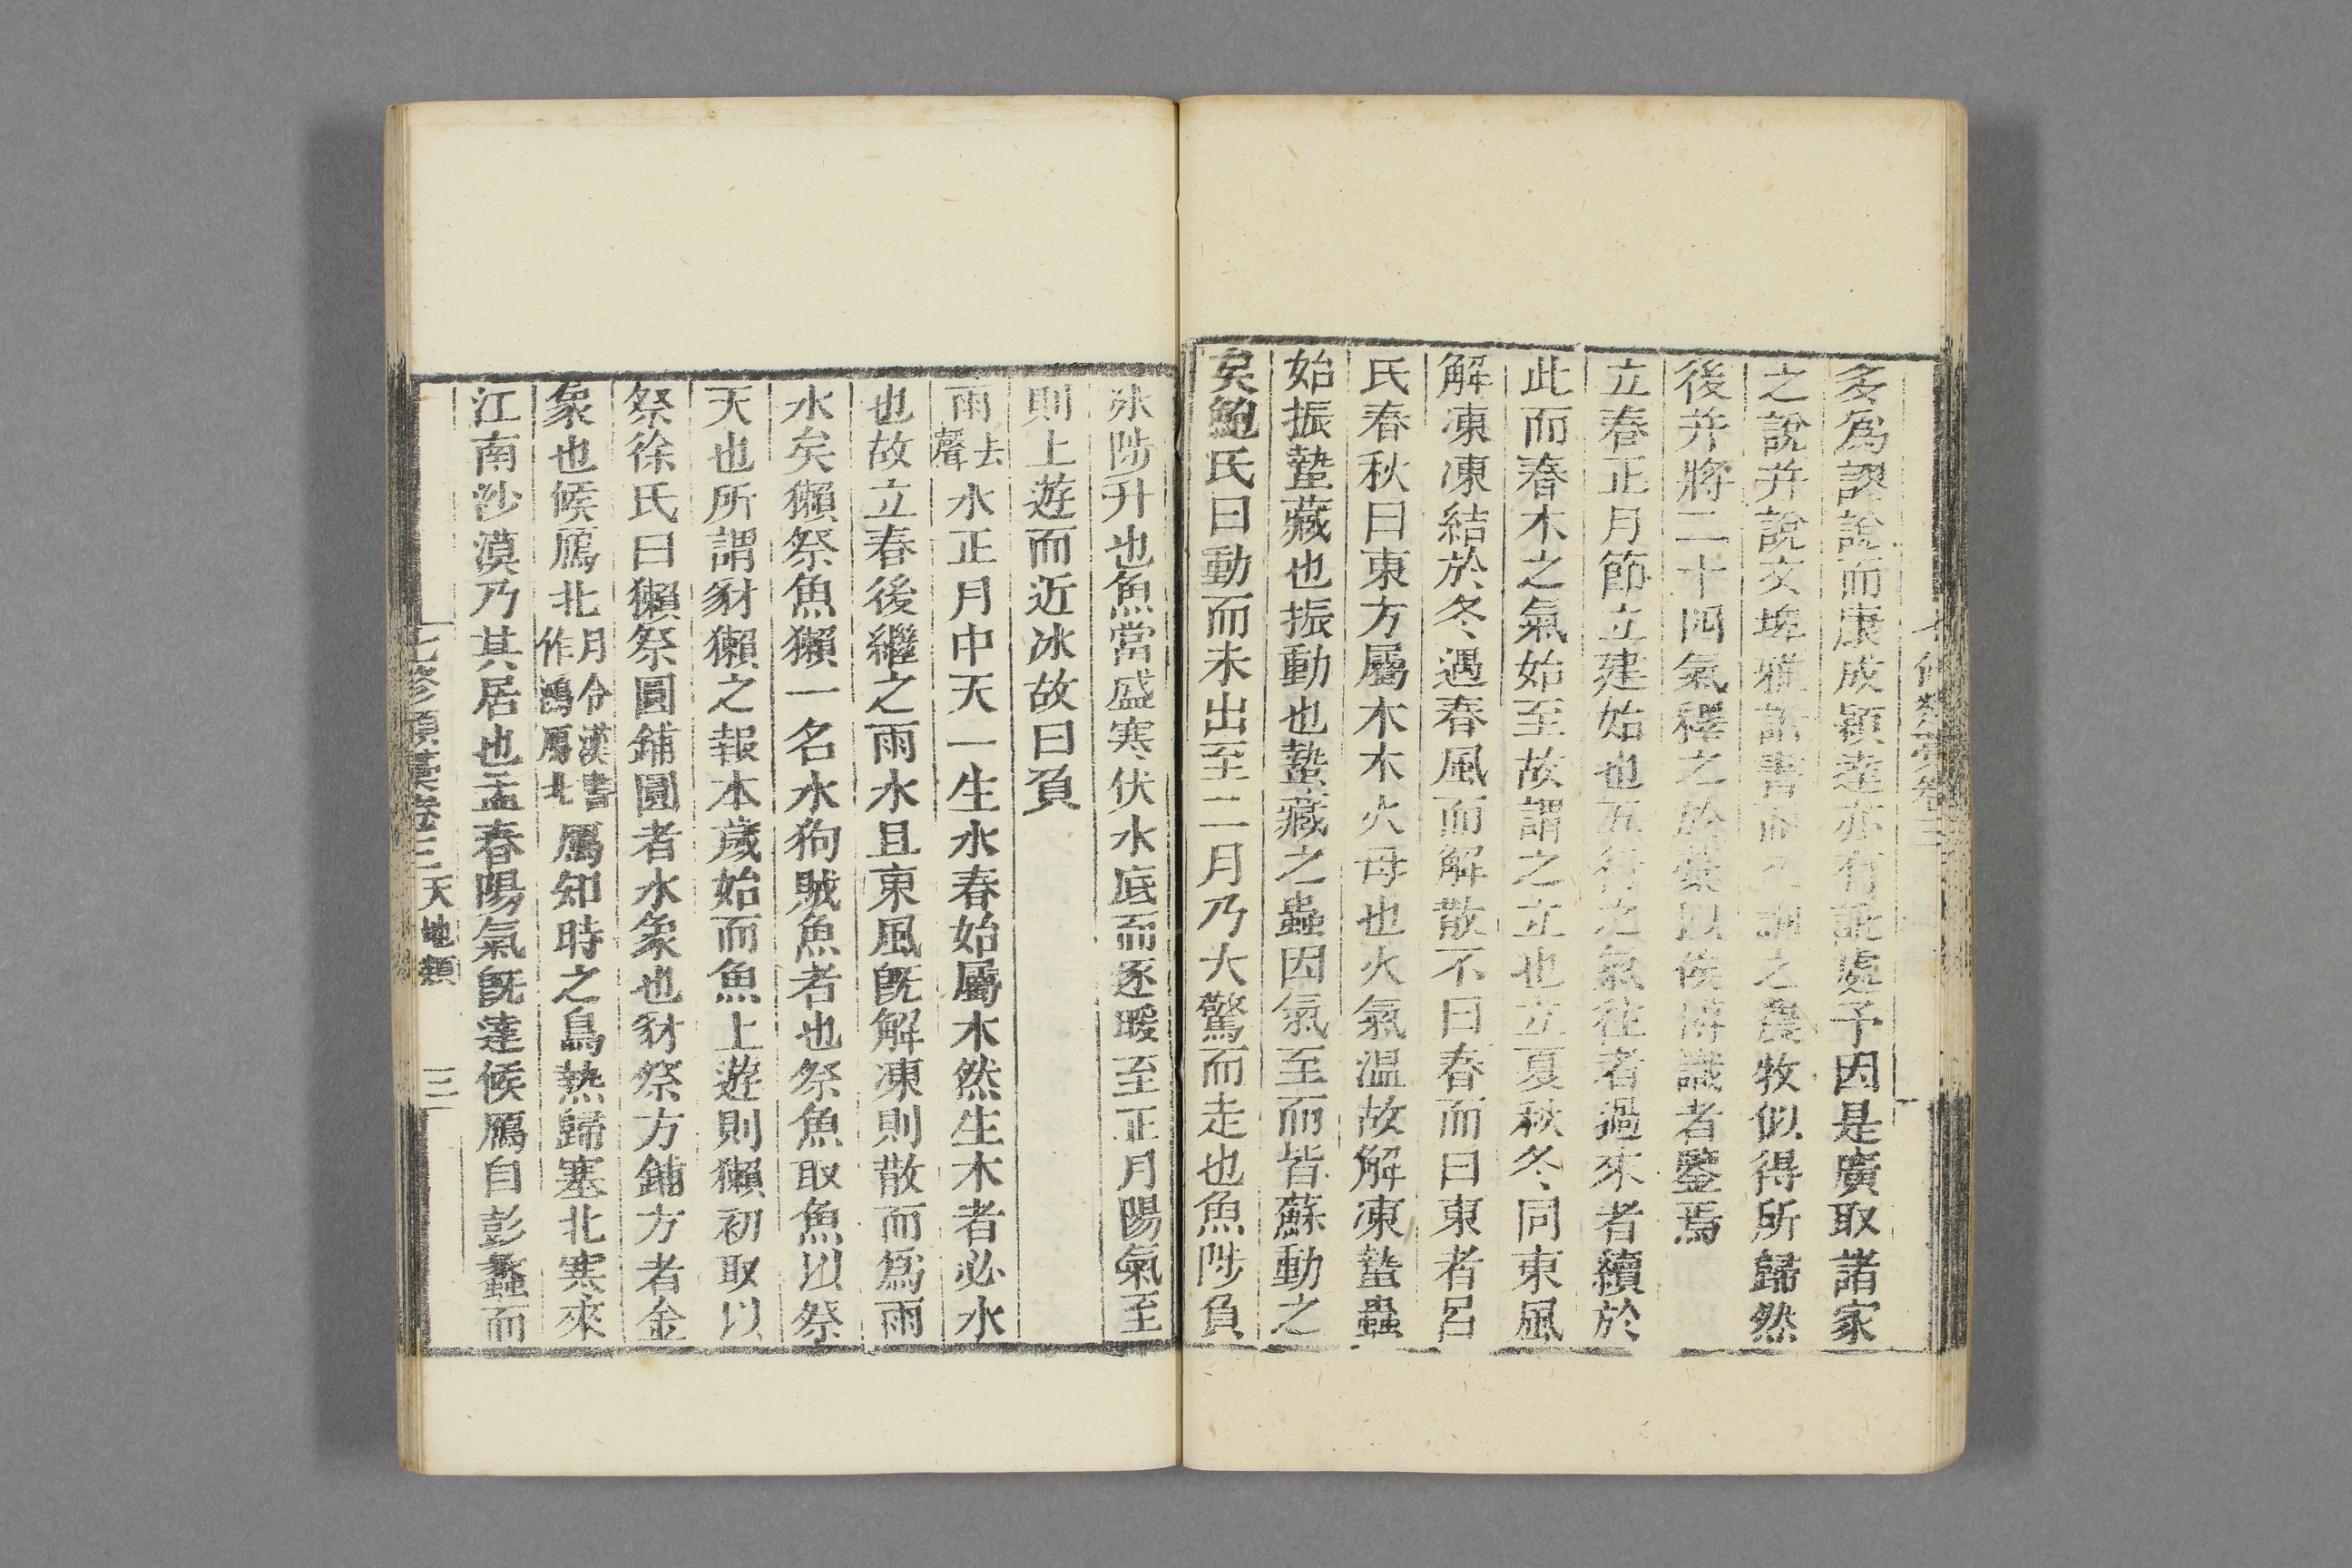 多爲謬說而康成穎達亦有訛處予因是廣取諸家
之說并說文埤雅諸書而又詢之農牧似得所歸然
後并將二十四氣釋之於藁以俟博識者鑒焉
立春正月節立建始也五行之氣往者過來者續於
此而春木之氣始至故謂之立也立夏秋冬同東風
解凍凍結於冬遇春風而解散不曰春而曰東者呂
氏春秋曰東方屬木木火母也火氣溫故解凍蟄蟲
始振蟄藏也振動也蟄藏之蟲因氣至而皆蘇動之
矣鮑氏曰動而未出至二月乃大驚而走也魚陟負
氷陟升也魚當盛寒伏水底而逐暖至正月陽氣至
則上遊而近冰故曰負
雨去聲水正月中天一生水春始屬木然生木者必水
也故立春後繼之雨水且東風旣解凍則散而爲雨
水矣獺祭魚獺一名水狗賊魚者也祭魚取魚以祭
天也所謂豺獺之報本歲始而魚上遊則獺初取以
祭徐氏曰獺祭圓鋪圓者水象也豺祭方鋪方者金
象也候鴈北月令漢書作鴻鴈北鴈知時之鳥熱歸塞北寒來
江南沙漠乃其居也孟春陽氣旣達候鴈自彭蠡而
七修類藁卷三 天地類 三